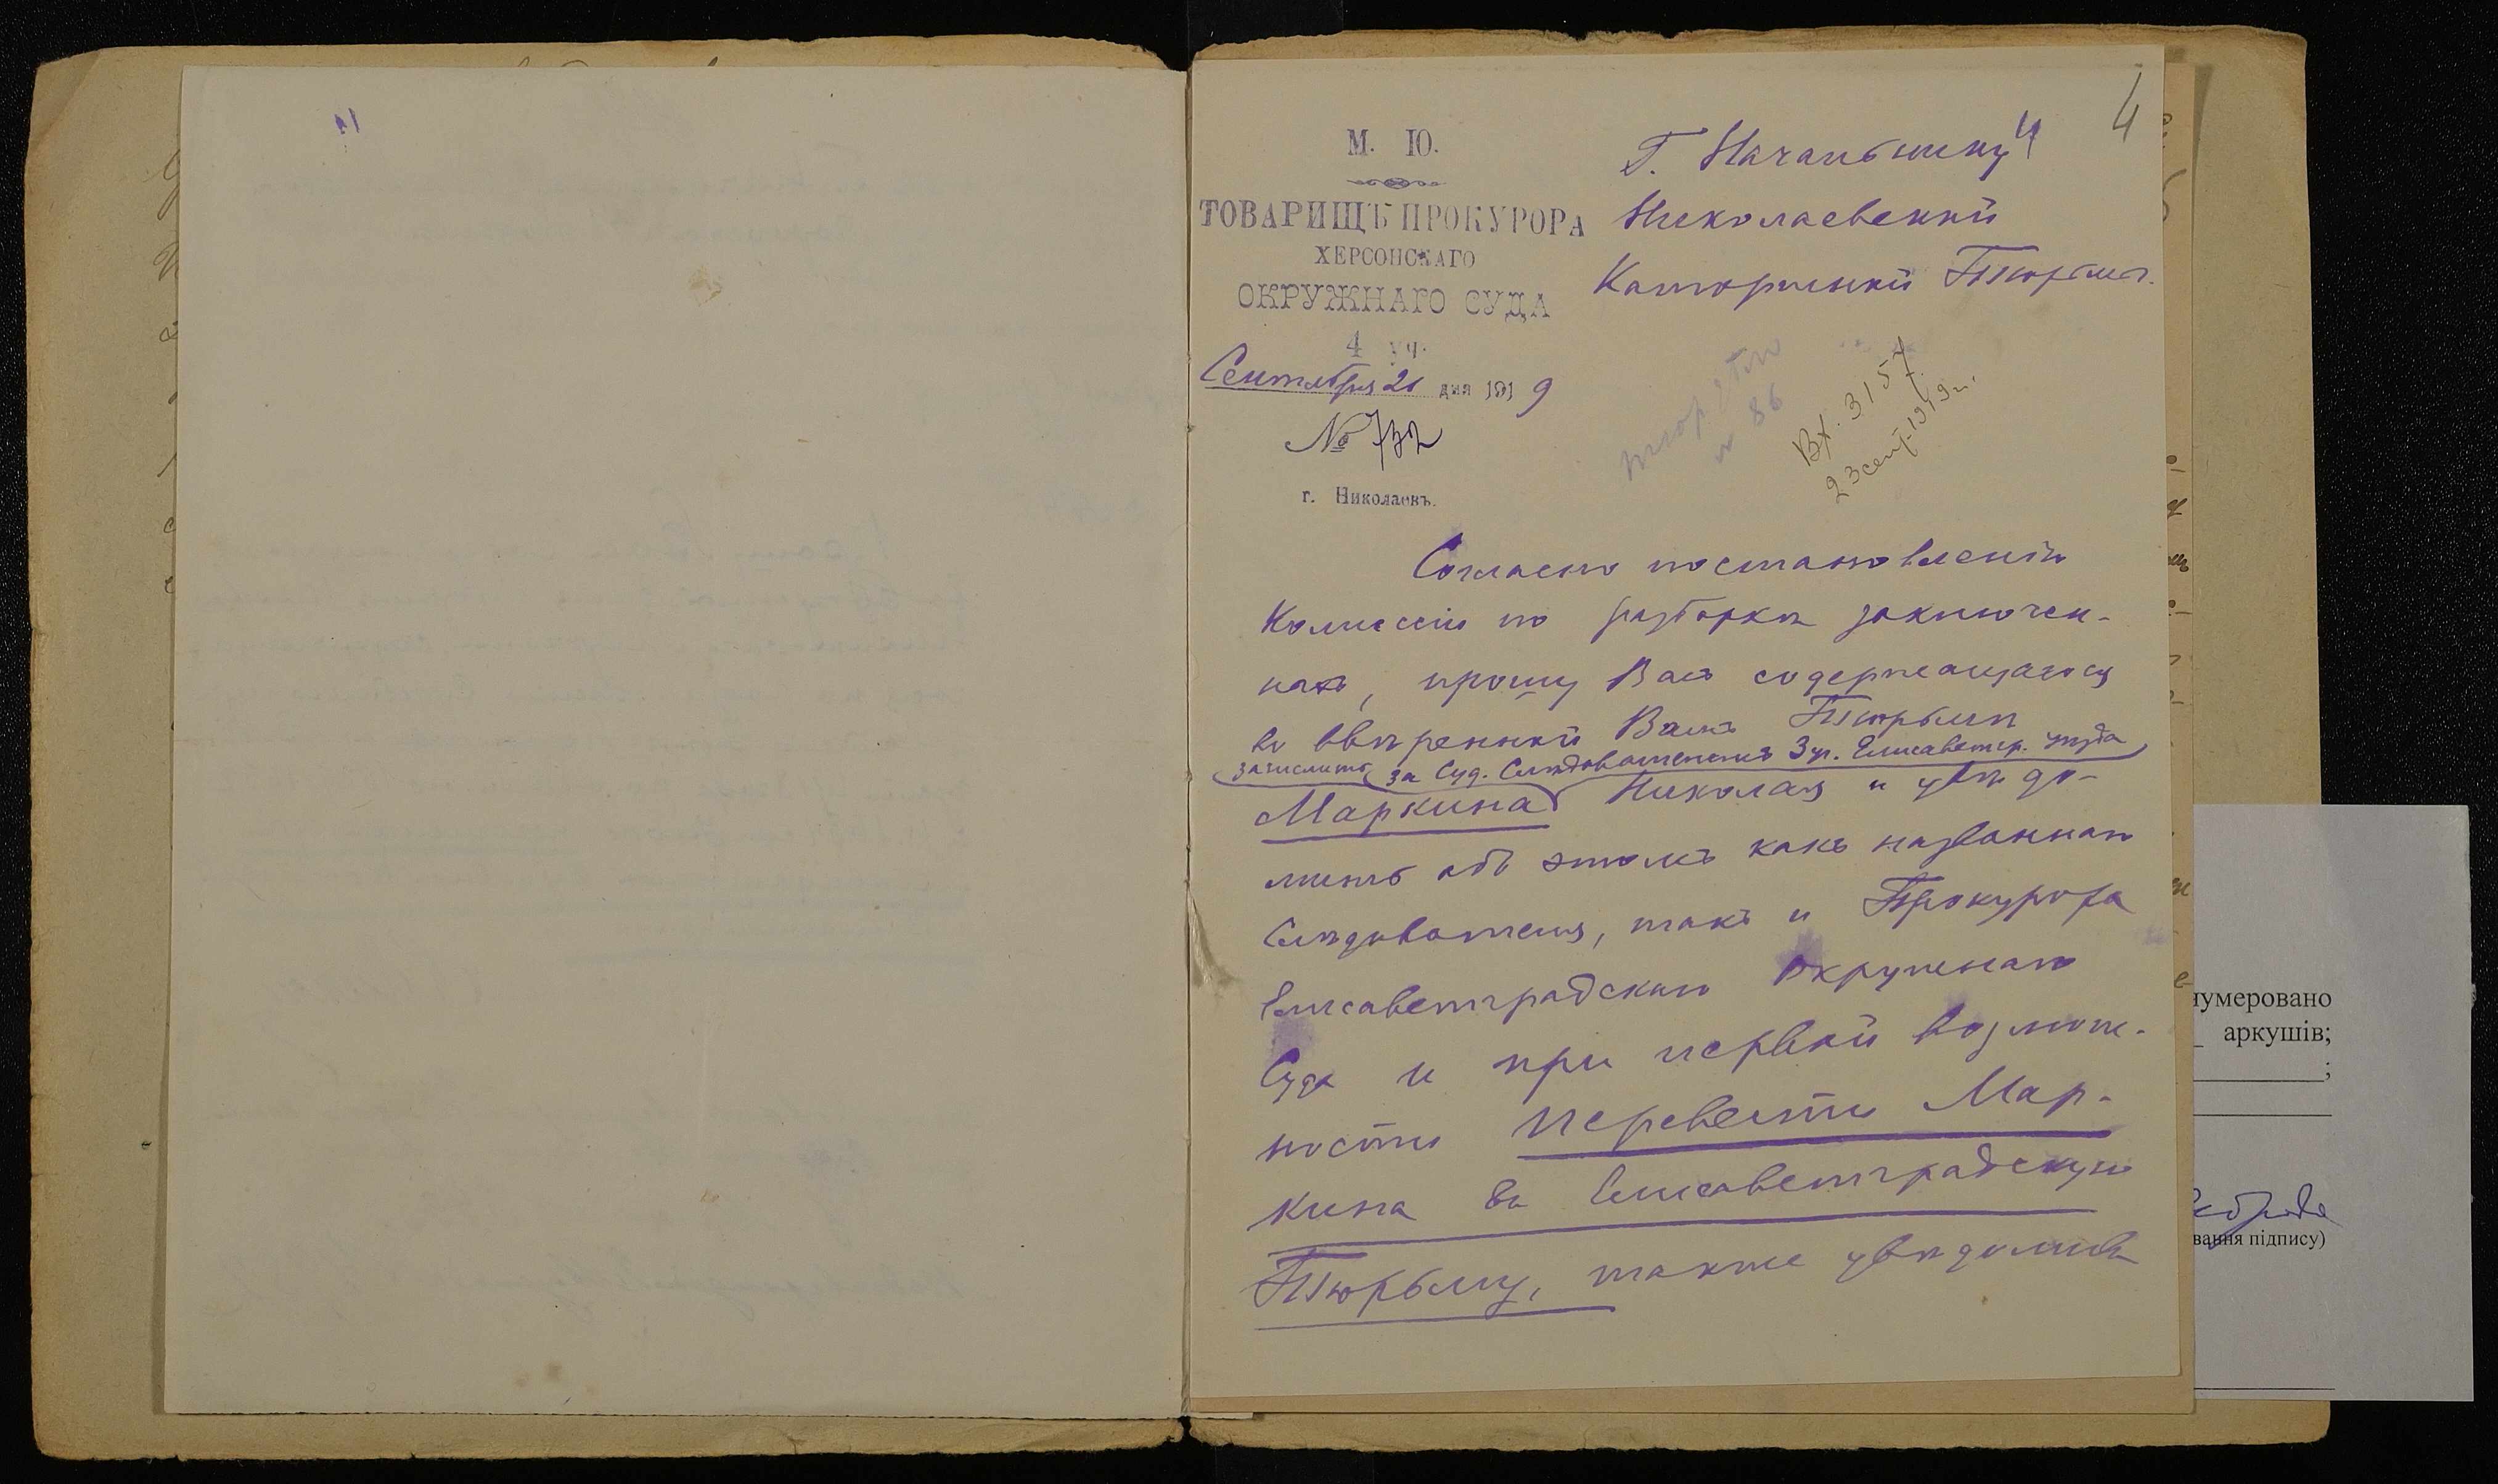 4
М. Ю.
ТОВАРИЩЪ ПРОКУРОРА
ХЕРСОНСКАГО
ОКРУЖНАГО СУДА
4 уч.
Сентября 21 дня 1919
№ 732
г. Николаевъ.
Г. Начальнику
Николаевской
Каторжной Тюрьмы.
Вх. 3157
23 сент. 1919 г.
Согласно постановленію
Комиссіи по разборкѣ заключен-
ныхъ, прошу Васъ содержащагося
во ввѣренной Вамъ Тюрьмѣ
зачислить за Суд. Слѣдователемъ 3 уч. Елисаветгр. уѣзда
Маркина Николая и увѣдо-
мить объ этомъ какъ названнаго
Слѣдователя, такъ и Прокурора
Елисаветградскаго Окружнаго
Суда и при первой возмож-
ности перевести Мар-
кина въ Елисаветградскую
Тюрьму, также увѣдомивъ
нумеровано
аркушів;
;
вання підпису)